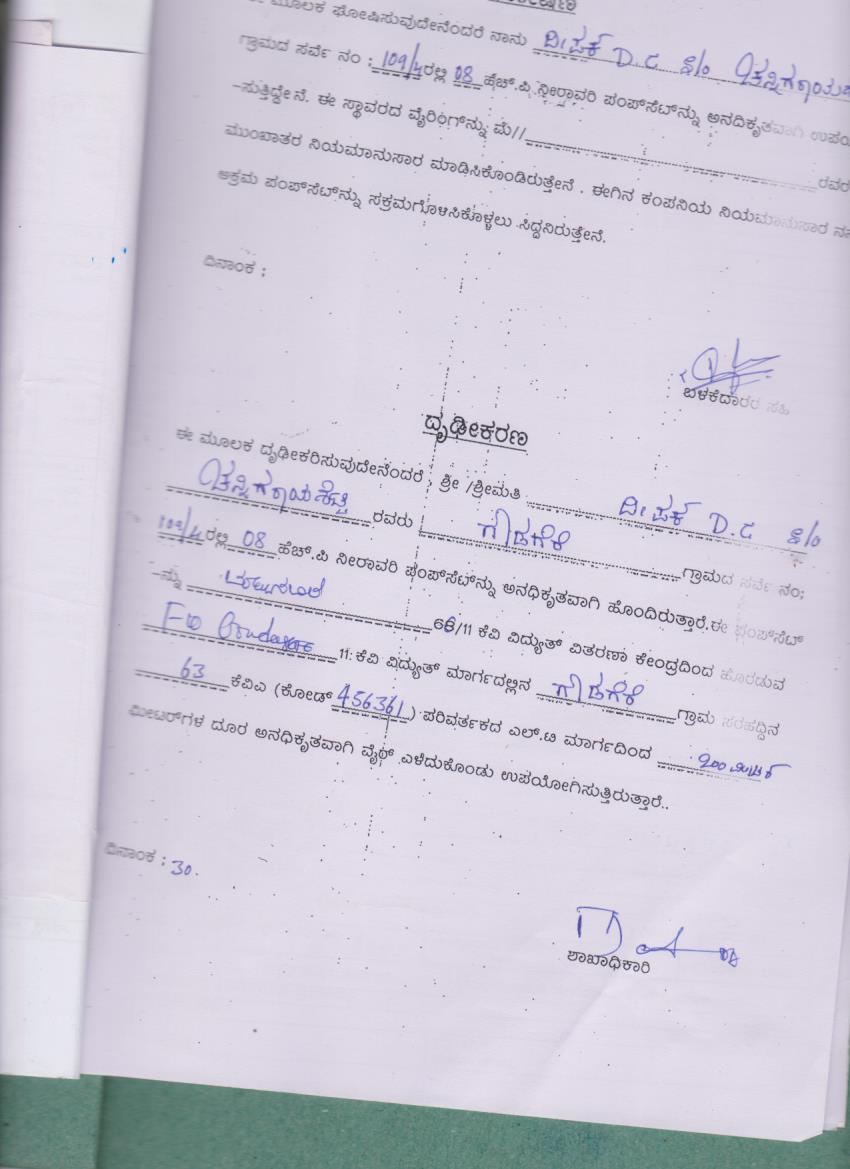 ಈ ಮೂಲಕ ಘೋಷಿಸುವುದೇನೆಂದರೆ ನಾನು ದೀಪಕ್ D.C S/o
ಗ್ರಾಮದ ಸರ್ವೆ ನಂ : 109/4 ರಲ್ಲಿ 08 ಹೆಚ್.ಪಿ ನೀರಾವರಿ ಪಂಪ್‌ಸೆಟ್‌ನ್ನು ಅನದಿಕೃತವಾಗಿ
-ಸುತ್ತಿದ್ದೇನೆ. ಈ ಸ್ಥಾವರದ ವೈರಿಂಗ್‌ನ್ನು ಮೆ// ರವರ
ಮುಖಾತರ ನಿಯಮಾನುಸಾರ ಮಾಡಿಸಿಕೊಂಡಿರುತ್ತೇನೆ . ಈಗಿನ ಕಂಪನಿಯ ನಿಯಮಾನುಸಾರ
ಅಕ್ರಮ ಪಂಪ್‌ಸೆಟ್‌ನ್ನು ಸಕ್ರಮಗೊಳಿಸಿಕೊಳ್ಳಲು ಸಿದ್ದನಿರುತ್ತೇನೆ.
ದಿನಾಂಕ :
ಬಳಕೆದಾರರ ಸಹಿ
ಧೃಢೀಕರಣ
ಈ ಮೂಲಕ ದೃಢೀಕರಿಸುವುದೇನೆಂದರೆ , ಶ್ರೀ /ಶ್ರೀಮತಿ ದೀಪಕ್ D.C S/o
ರವರು ಗೌಡಗೆರೆ ಗ್ರಾಮದ ಸರ್ವೆ ನಂ;
109/4 ರಲ್ಲಿ 08 ಹೆಚ್.ಪಿ ನೀರಾವರಿ ಪಂಪ್‌ಸೆಟ್‌ನ್ನು ಅನಧಿಕೃತವಾಗಿ ಹೊಂದಿರುತ್ತಾರೆ.ಈ ಪಂಪ್‌ಸೆಟ್
-ನ್ನು 66/11 ಕೆವಿ ವಿದ್ಯುತ್ ವಿತರಣಾ ಕೇಂದ್ರದಿಂದ ಹೊರಡುವ
F10 11 ಕೆವಿ ವಿದ್ಯುತ್ ಮಾರ್ಗದಲ್ಲಿನ ಗೌಡಗೆರೆ ಗ್ರಾಮ ಸರಹದ್ದಿನ
63 ಕೆವಿಎ (ಕೋಡ್ 456361) ಪರಿವರ್ತಕದ ಎಲ್.ಟಿ ಮಾರ್ಗದಿಂದ 200 ಮೀಟರ್
ಮೀಟರ್‌ಗಳ ದೂರ ಅನಧಿಕೃತವಾಗಿ ವೈರ್ ಎಳೆದುಕೊಂಡು ಉಪಯೋಗಿಸುತ್ತಿರುತ್ತಾರೆ..
ದಿನಾಂಕ : 30.
ಶಾಖಾಧಿಕಾರಿ